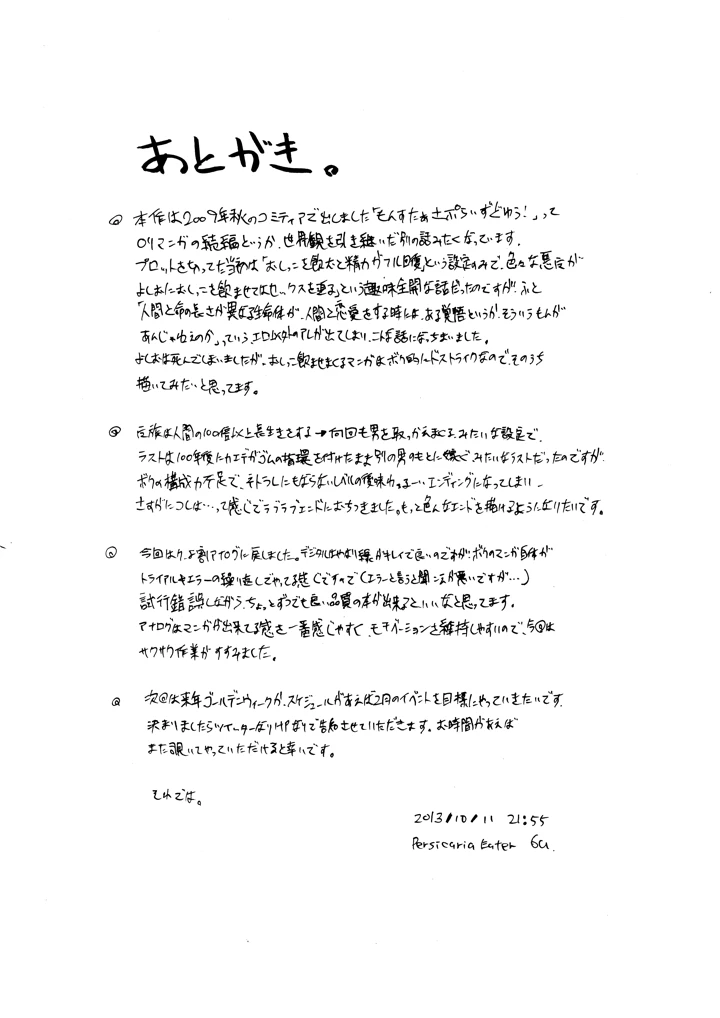 あとがき。
本作は2009年秋のコミティアで出しました「もんすたぁさぷらいずどゆう！」って
ロリマンガの続編というか、世界観を引き継いだ別の話みたくなっています。
プロットを切ってた当初は「おしっこを飲むと精力がフル回復」という設定のみで、色々な悪魔が
よしおにおしっこを飲ませてはセックスを迫るという趣味全開な話だったのですが、ふと
「人間と命の長さが異なる生命体が、人間と恋愛をする時には、ある覚悟というか、そういうもんが
あんじゃねえのか」っていう、エロ以外のアレが出てしまい、こんな話になっちまいました。
よしおは死んでしまいましたが、おしっこ飲ませまくるマンガはボク的にドストライクなので、そのうち
描いてみたいと思ってます。
魔族は人間の100倍以上長生きをする→何回も男を取っかえまくる、みたいな設定で、
ラストは100年後にカエデがゴムの指環を付けたまま別の男のもとに嫁ぐ、みたいなラストだったのですが、
ボクの構成力不足で、ネトラレにもならないレベルの後味わっるーいエンディングになってしまい、
さすがにコレは…って感じでラブラブエンドにおちつきました。もっと色んなエンドを描けるようになりたいです。
今回は9.5割アナログに戻しました。デジタルはやはり線がキレイで良いのですが、ボクのマンガ自体が
トライアル&エラーの繰り返しでやってる感じですので（エラーと言うと聞こえが悪いですが…）
試行錯誤しながら、ちょっとずつでも良い品質の本が出来るといいなと思ってます。
アナログはマンガが出来てる感を一番感じやすく、モチベーションを維持しやすいので、今回は
サクサク作業がすすみました。
次回は来年ゴールデンウィークか、スケジュールがあえば2月のイベントを目標にやっていきたいです。
決まりましたらツイッターなりHPなりで告知させていただきます。お時間があえば
また覗いてやっていただけると幸いです。
それでは。
2013/10/11 21:55
Persicaria Eater 6u.